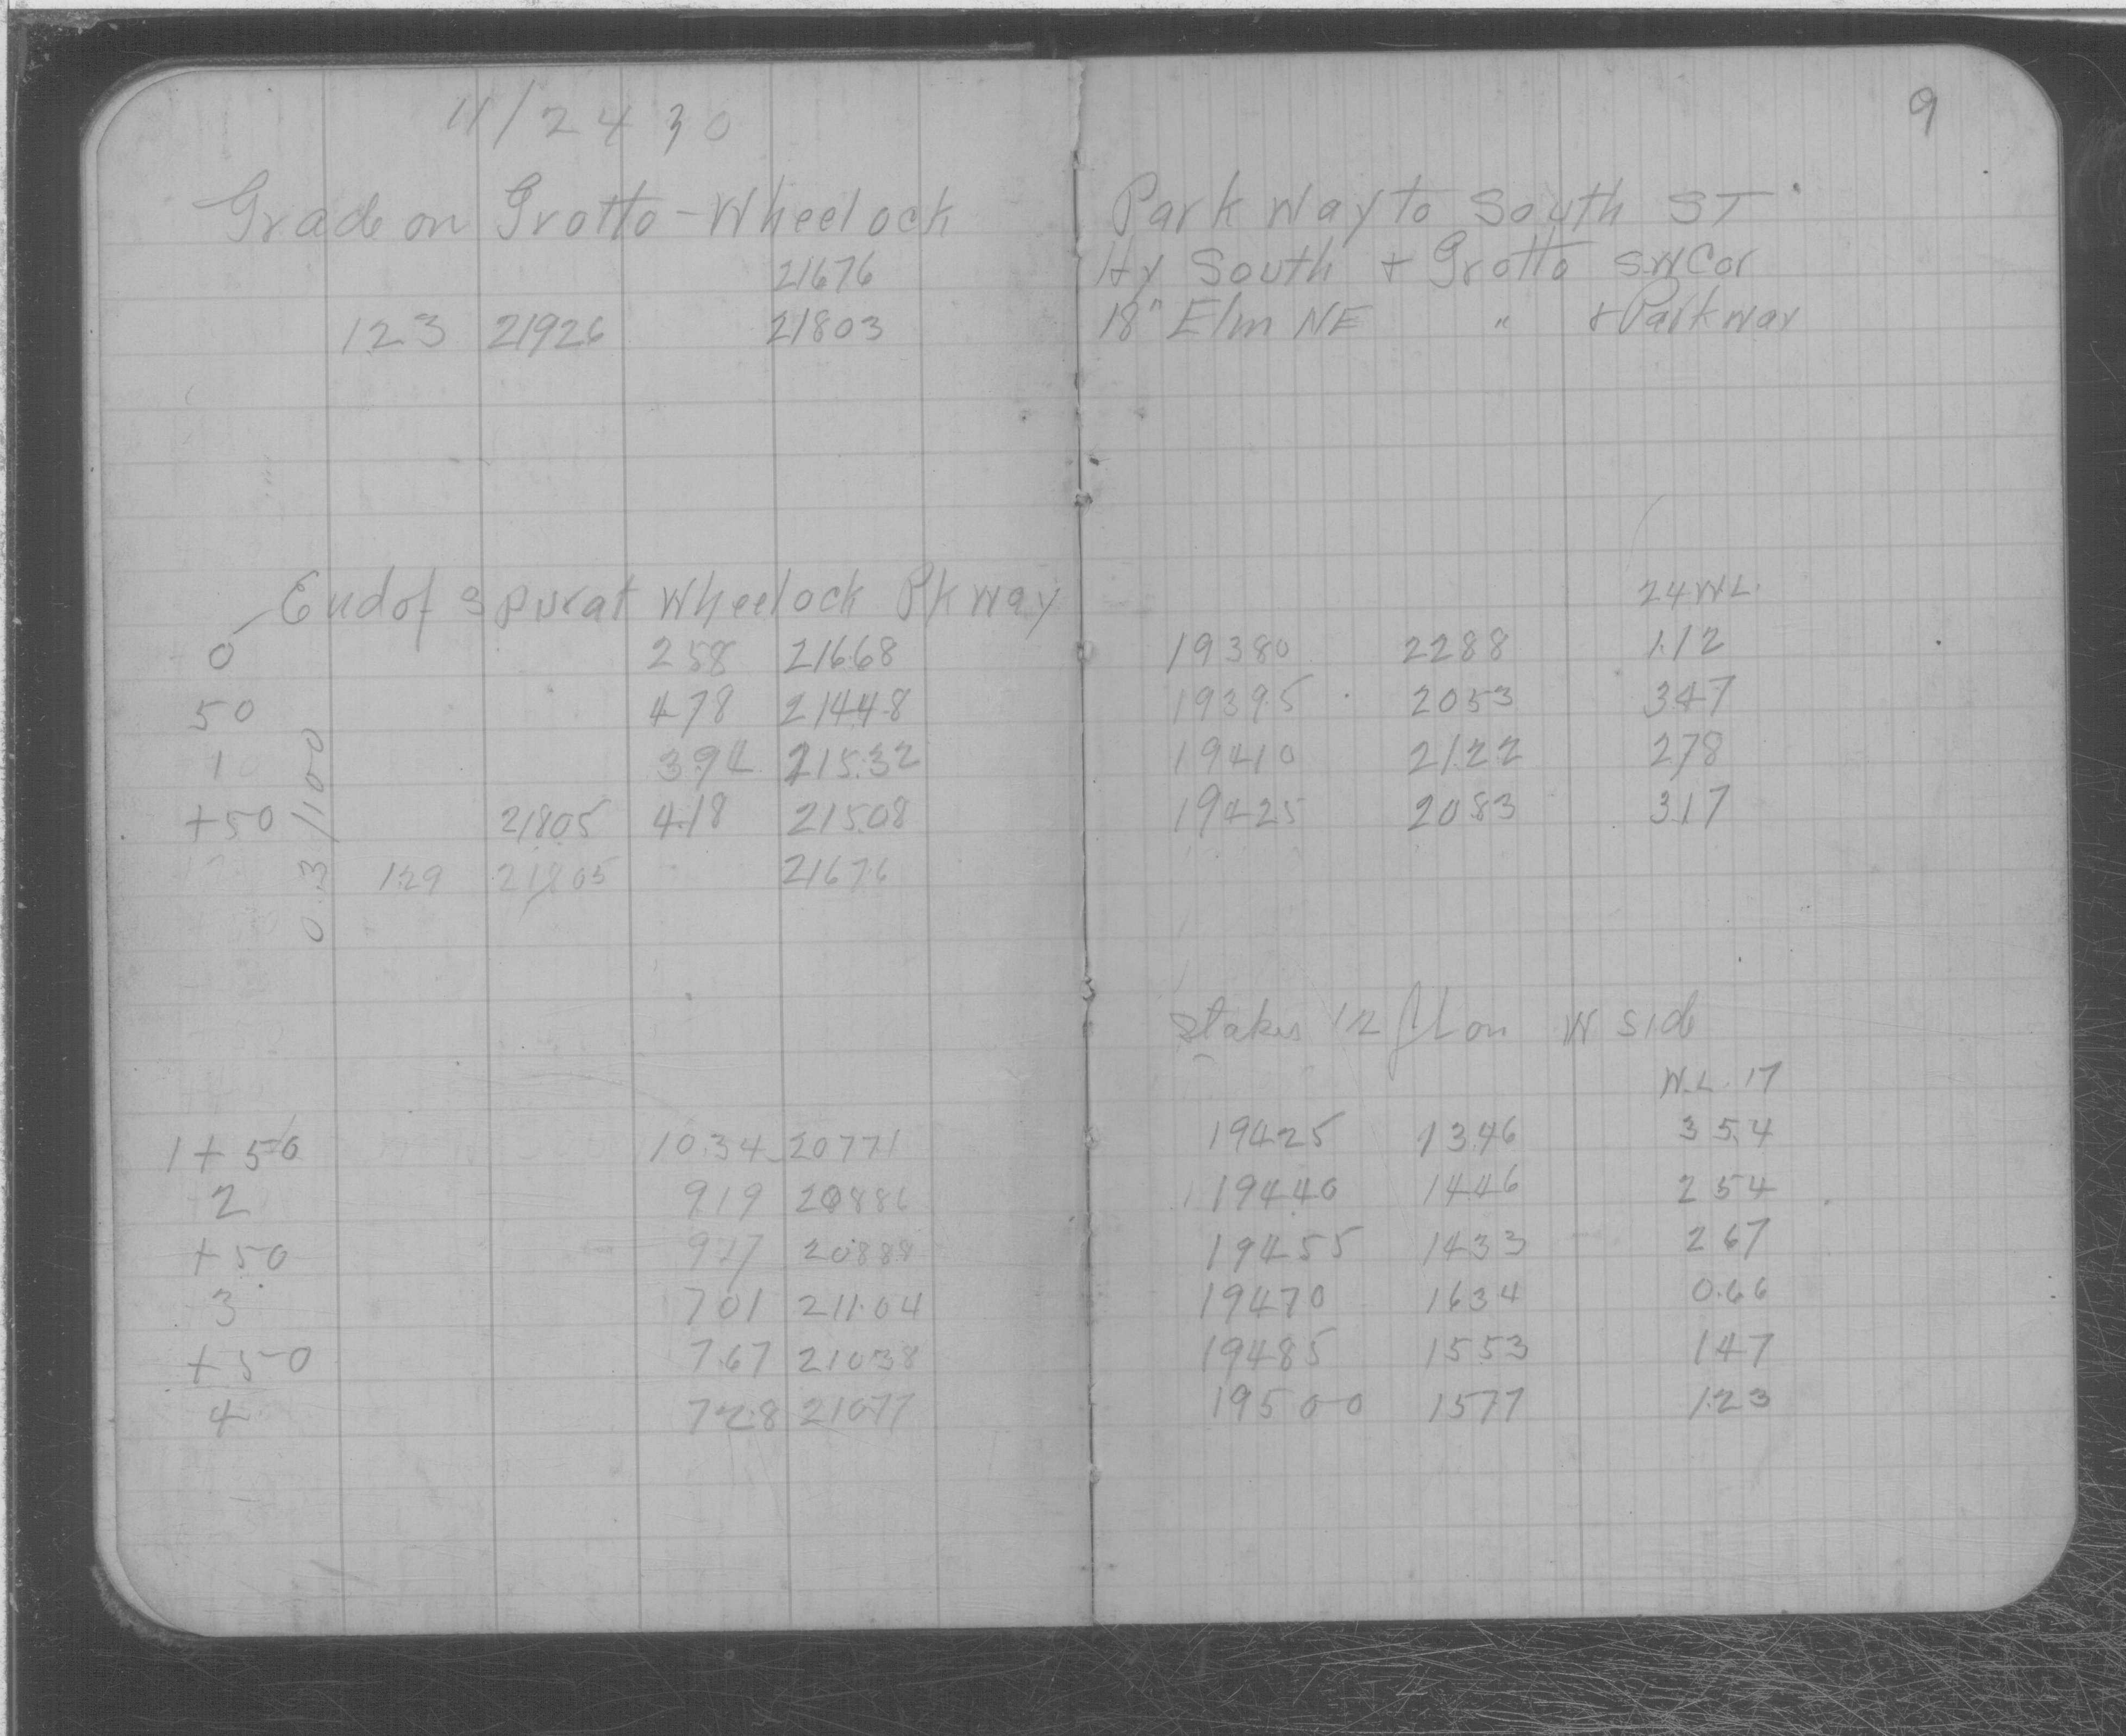 9
11/24 30
Grade on Grotto - Wheelock Park Way to South ST
21676 Hy South + Grotto SW Cor
123 21926 21803 18" Elm NE " + Parkway
End of spur at Wheelock Pk way 24 W.L.
0 258 21668 19380 2288 1.12
50 478 21448 19395 2053 347
1 394 215.32 19410 21.22 278
+50 21805 418 21508 19425 2083 317
129 21805 21676
0.3/100
Stakes 12 on W side
W.L. 17
1+50 10.34 20771 19425 1346 354
2 919 20886 19440 1446 254
+50 917 20888 19455 1433 267
3 701 211.04 19470 1634 0.66
+50 7.67 21038 19485 1553 147
4 728 21077 19500 1577 1.23